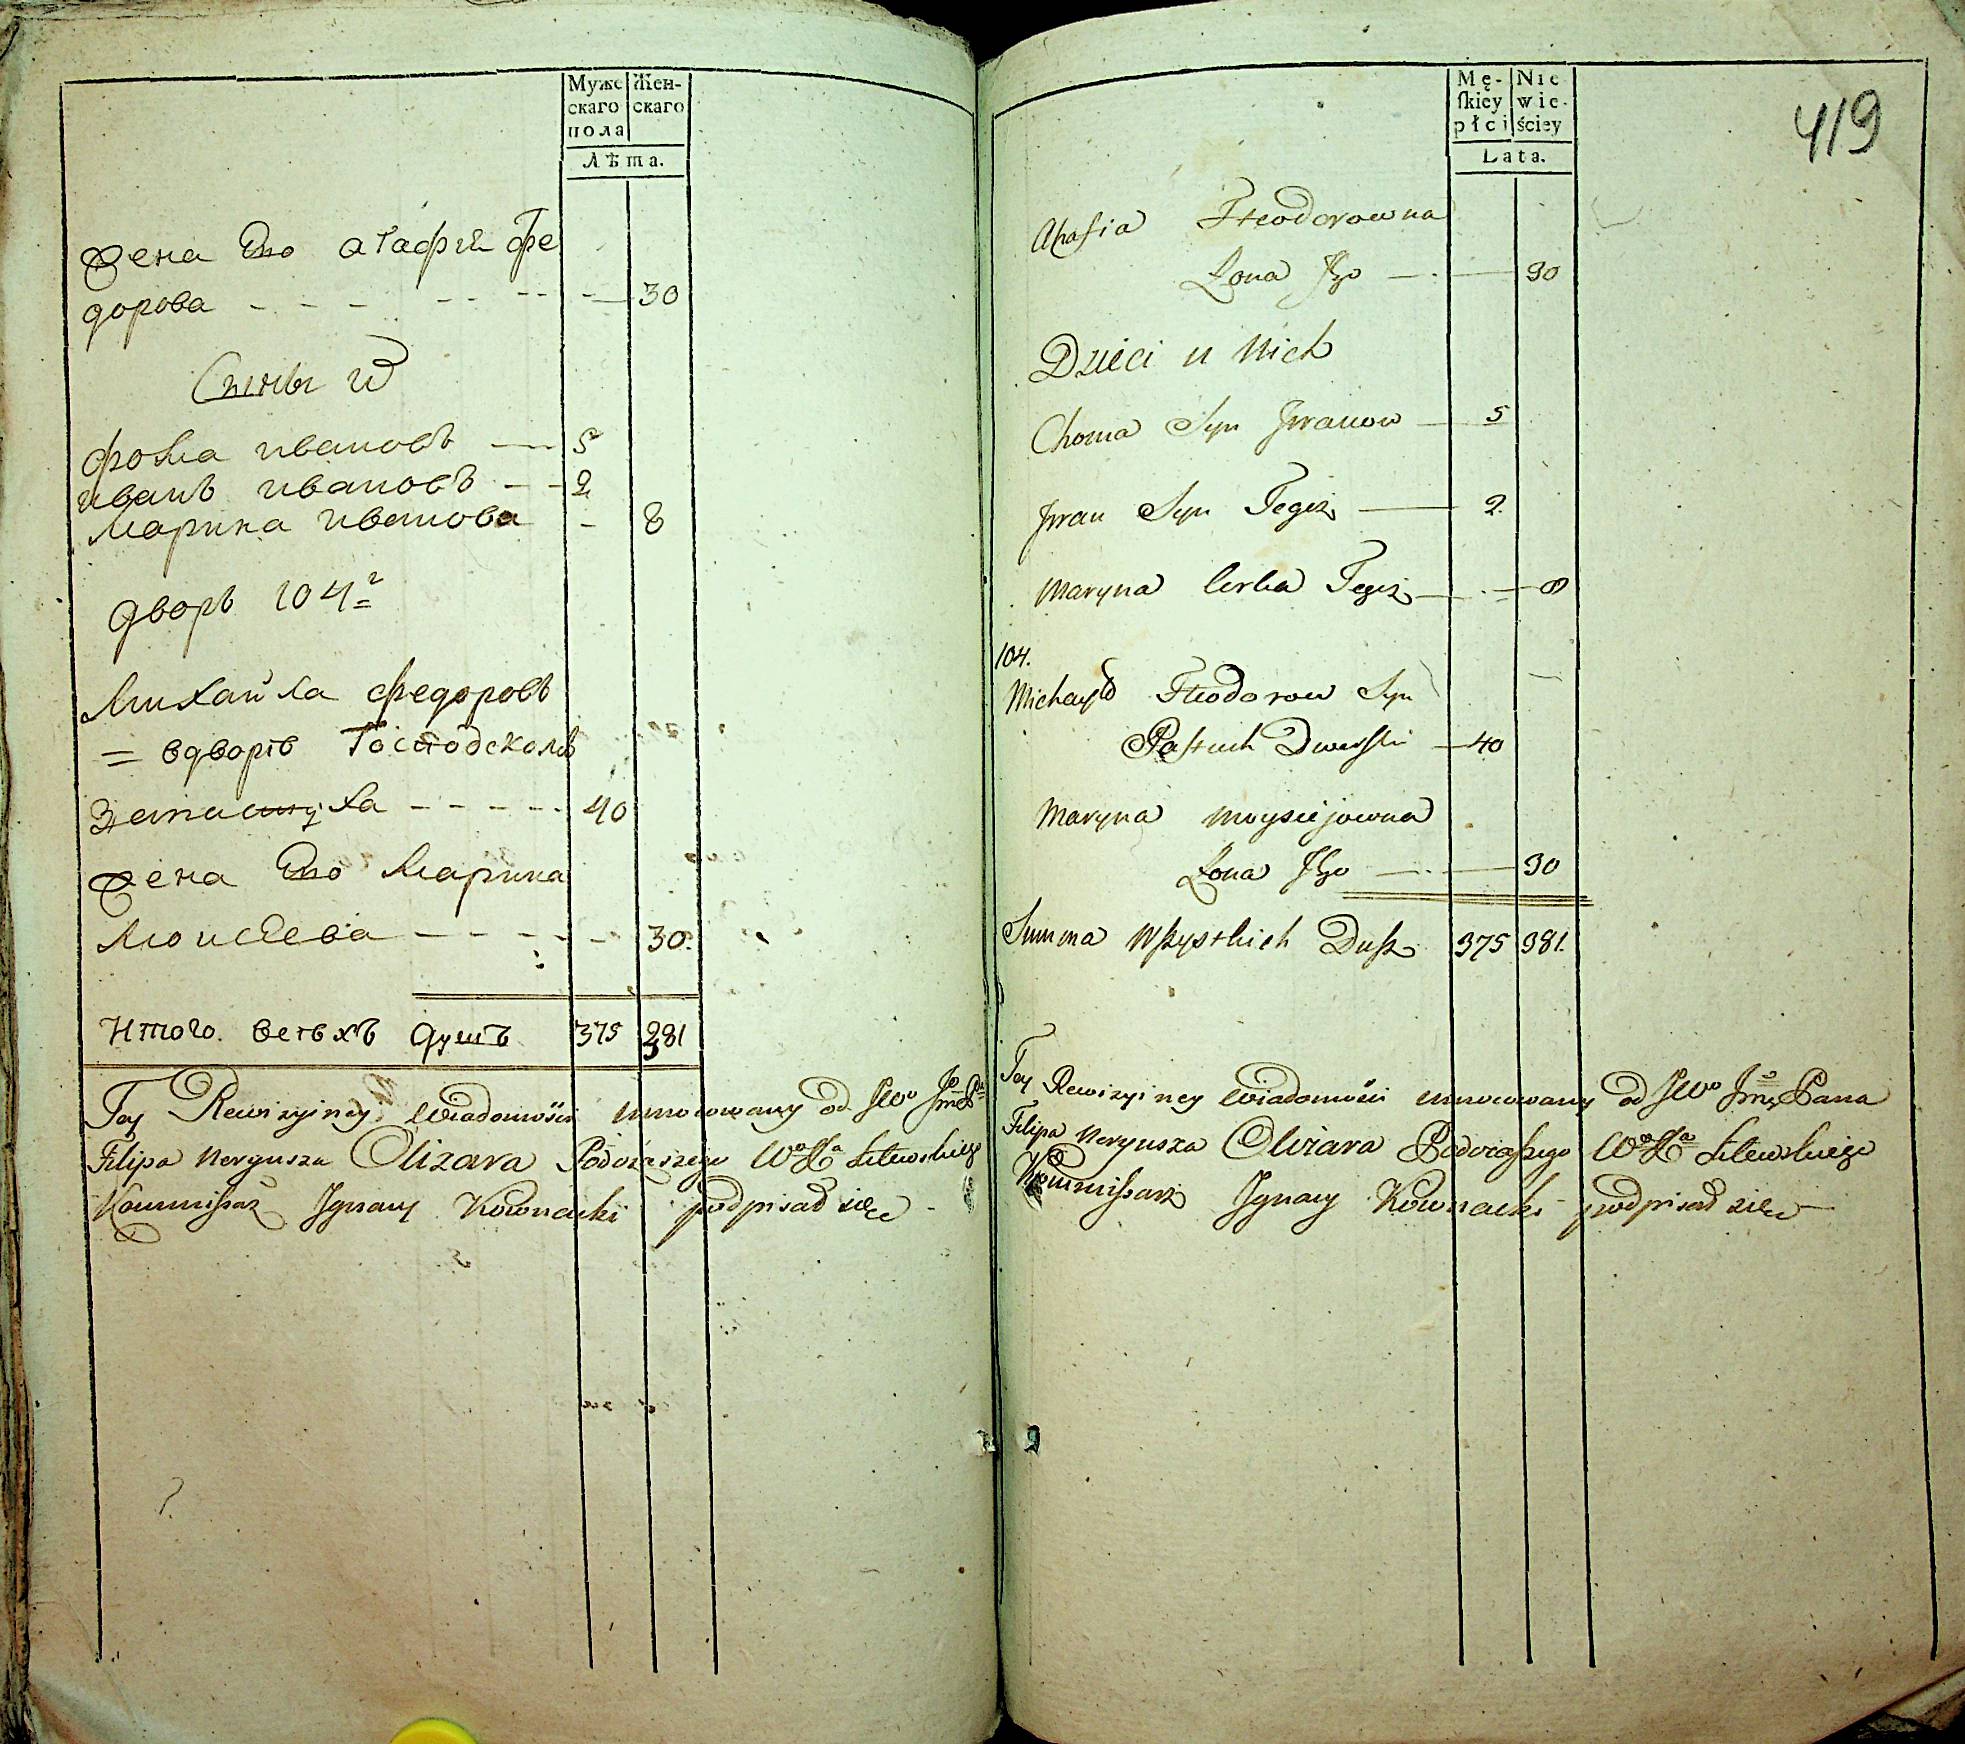 Муже
скаго
пола
Жен-
скаго
Лѣта.
жена его агафия фе
дорова - - - - 30
Сыны и
фома ивановъ — 5
иванъ ивановъ - - 2
Марина иванова - 8
дворъ 104г
Михайла федоровъ
= вдворѣ Господскомъ
40
жена его Марина
Моисеева - - - - 30.
Итого. всѣхъ душъ 375 381
Tey Rewizyiney Wiadomości umocowany od JWo Jmci Pa
Filipa Neryusza Olizara Podczaszego Wo Xa Litewskiego
Kommissarz Ignacy Kownacki podpisał się
419
Mę-
skiey
płci
Nie
wie-
ściey
Lata.
Ahafia Fteodorowna
Żona Jgo — 30
Dzieci u Nich
Choma Syn Jwanow — 5
Jwan Syn Tegiż — 2
Maryna Curka Tegiż — 8
104.
Michayło Fteodorow Syn
Pastuch Dworski — 40
Maryna Moysiejowna
Żona Jgo — 30
Summa Wszystkich Dusz 375 381.
Tey Rewizyiney Wiadomości umocowany od JWo Jmci Pana
Filipa Neryusza Olizara Podczaszego Wo Xa Litewskiego
Kommissarz Ignacy Kownacki podpisał się